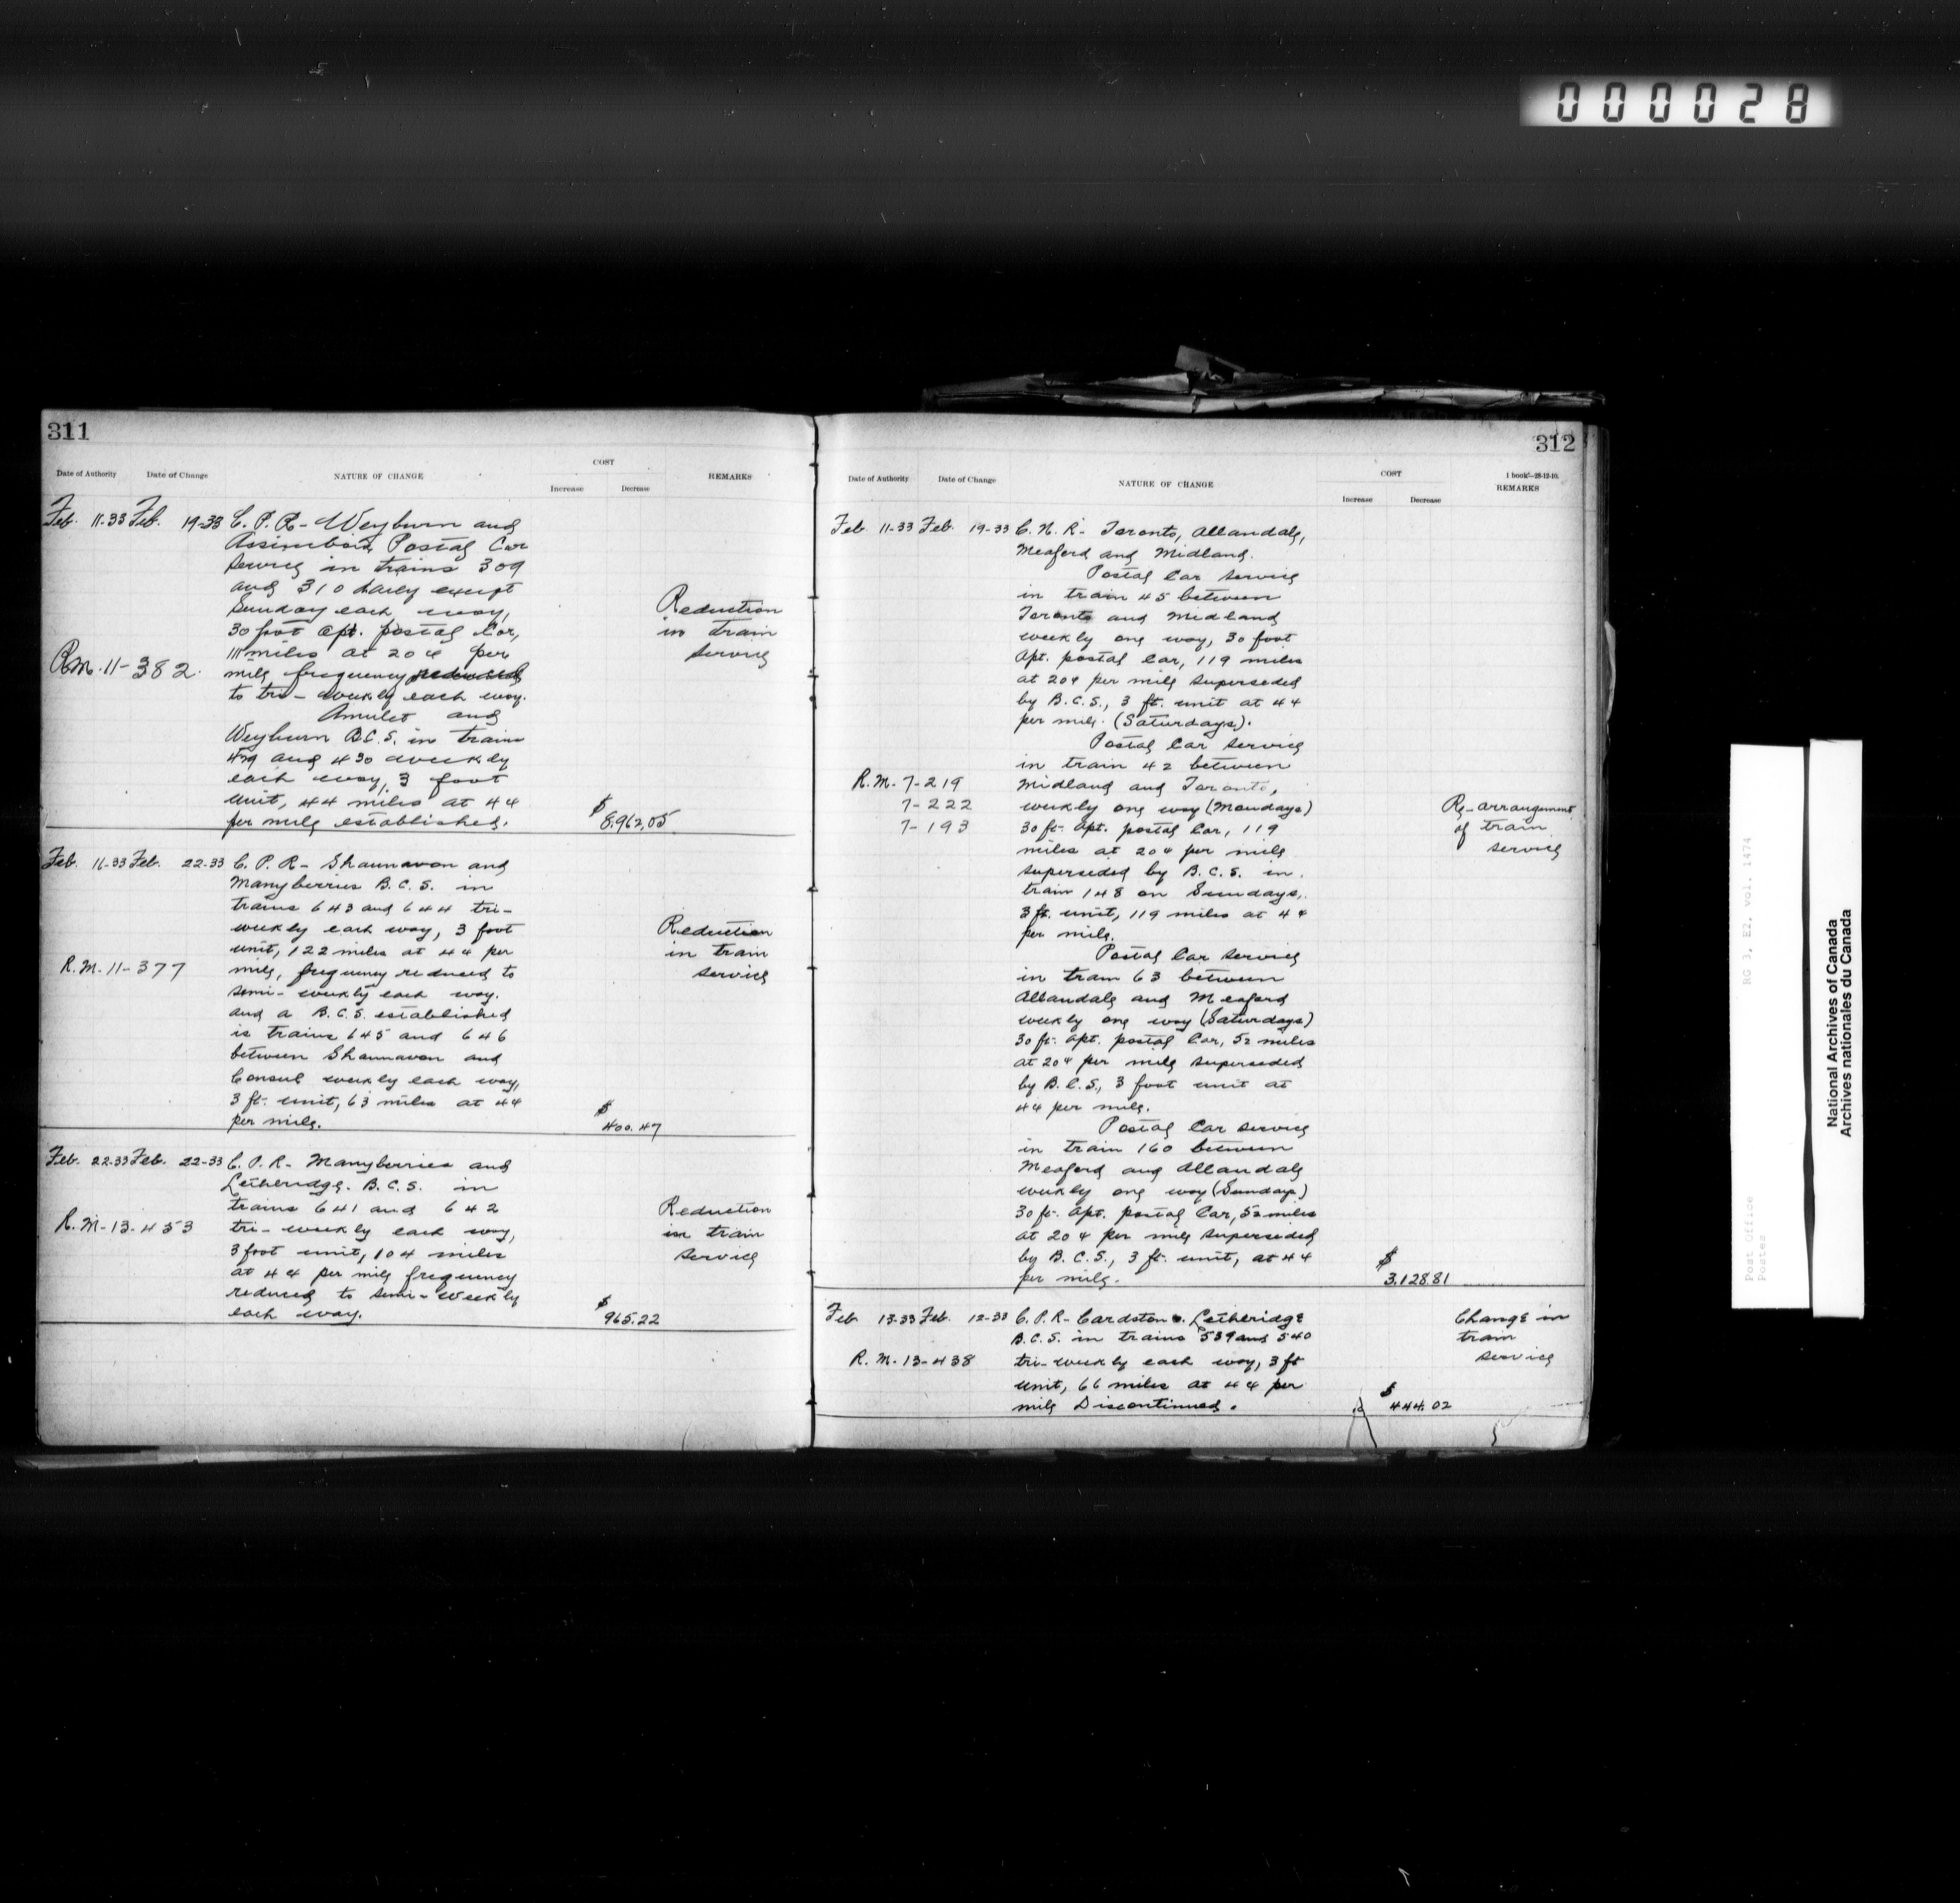 000028
311
Date of Authority Date of Change NATURE OF CHANGE COST Increase Decrease REMARKS
Feb. 11-33 Feb. 19-33 C. P. R. - Weyburn and
Assiniboia Postal Car
service in trains 309
and 310 daily except
Sunday each way,
30 foot apt. postal Car,
111 miles at 20¢ per
R.M. 11-382. mile frequency reduced
to tri-weekly each way.
Amulet and
Weyburn B.C.S. in trains
429 and 430 weekly
each way, 3 foot
unit, 44 miles at 4¢
per mile established.
$
8,962,05
Reduction
in train
service
Feb. 16-33 Feb. 22-33 C. P. R - Shaunavon and
Manyberries B.C.S. in
trains 643 and 644 tri-
weekly each way, 3 foot
unit, 122 miles at 4¢ per
R.M. 11-377 mile, frequency reduced to
semi-weekly each way.
and a B.C.S. established
is trains 645 and 646
between Shaunavon and
Consul weekly each way,
3 ft. unit, 63 miles at 4¢
per mile.
$
400.47
Reduction
in train
service
Feb. 22-33 Feb. 22-33 C. P. R - Manyberries and
Letheridge. B.C.S. in
trains 641 and 642
R.M-13-453 tri-weekly each way,
3 foot unit, 104 miles
at 4¢ per mile frequency
reduced to semi-weekly
each way.
$
965.22
Reduction
in train
service
312
1 book—28-12-10.
Date of Authority Date of Change NATURE OF CHANGE COST Increase Decrease REMARKS
Feb 11-33 Feb. 19-33 C. N. R - Toronto, Allandale,
Meaford and Midland.
Postal Car service
in train 45 between
Toronto and Midland
weekly one way, 30 foot
Apt. postal Car, 119 miles
at 20¢ per mile superseded
by B.C.S., 3 ft. unit at 4¢
per mile. (Saturdays).
Postal Car service
in train 42 between
R.M. 7-219 Midland and Toronto,
7-222 weekly one way (Mondays)
7-193 30 ft. Apt. postal Car, 119
miles at 20¢ per mile
superseded by B.C.S. in
train 148 on Sundays,
3 ft. unit, 119 miles at 4¢
per mile.
Postal Car service
in train 63 between
Allandale and Meaford
weekly one way (Saturdays)
30 ft. Apt. postal Car, 52 miles
at 20¢ per mile superseded
by B.C.S., 3 foot unit at
4¢ per mile.
Postal Car service
in train 160 between
Meaford and Allandale
weekly one way (Sundays)
30 ft. Apt. postal Car, 52 miles
at 20¢ per mile superseded
by B.C.S., 3 ft. unit, at 4¢
per mile.
$
3,128.81
Re-arrangement
of train
service
Feb 13-33 Feb. 12-33 C. P. R - Cardston & Letheridge
B.C.S. in trains 539 and 540
R.M. 13-438 tri-weekly each way, 3 ft
unit, 66 miles at 4¢ per
mile Discontinued.
$
444.02
Change in
train
service
Post Office RG 3, E2, vol. 1474
Postes
National Archives of Canada
Archives nationales du Canada